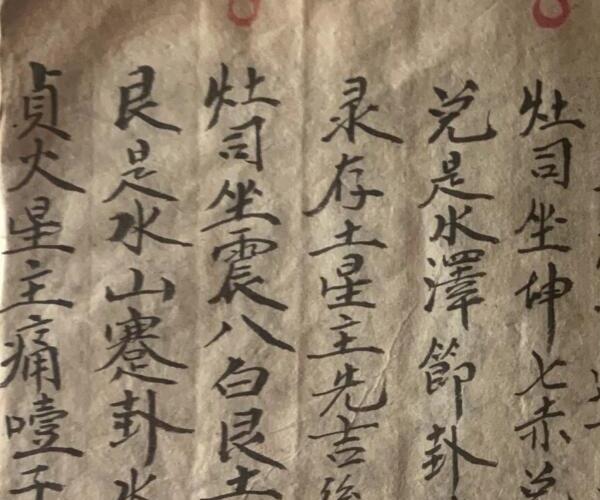 灶司坐坤七赤兑
兑是水澤節卦
录存土星主先吉後
灶司坐震八白艮土
艮是水山蹇卦水
貞火星主痛噎子